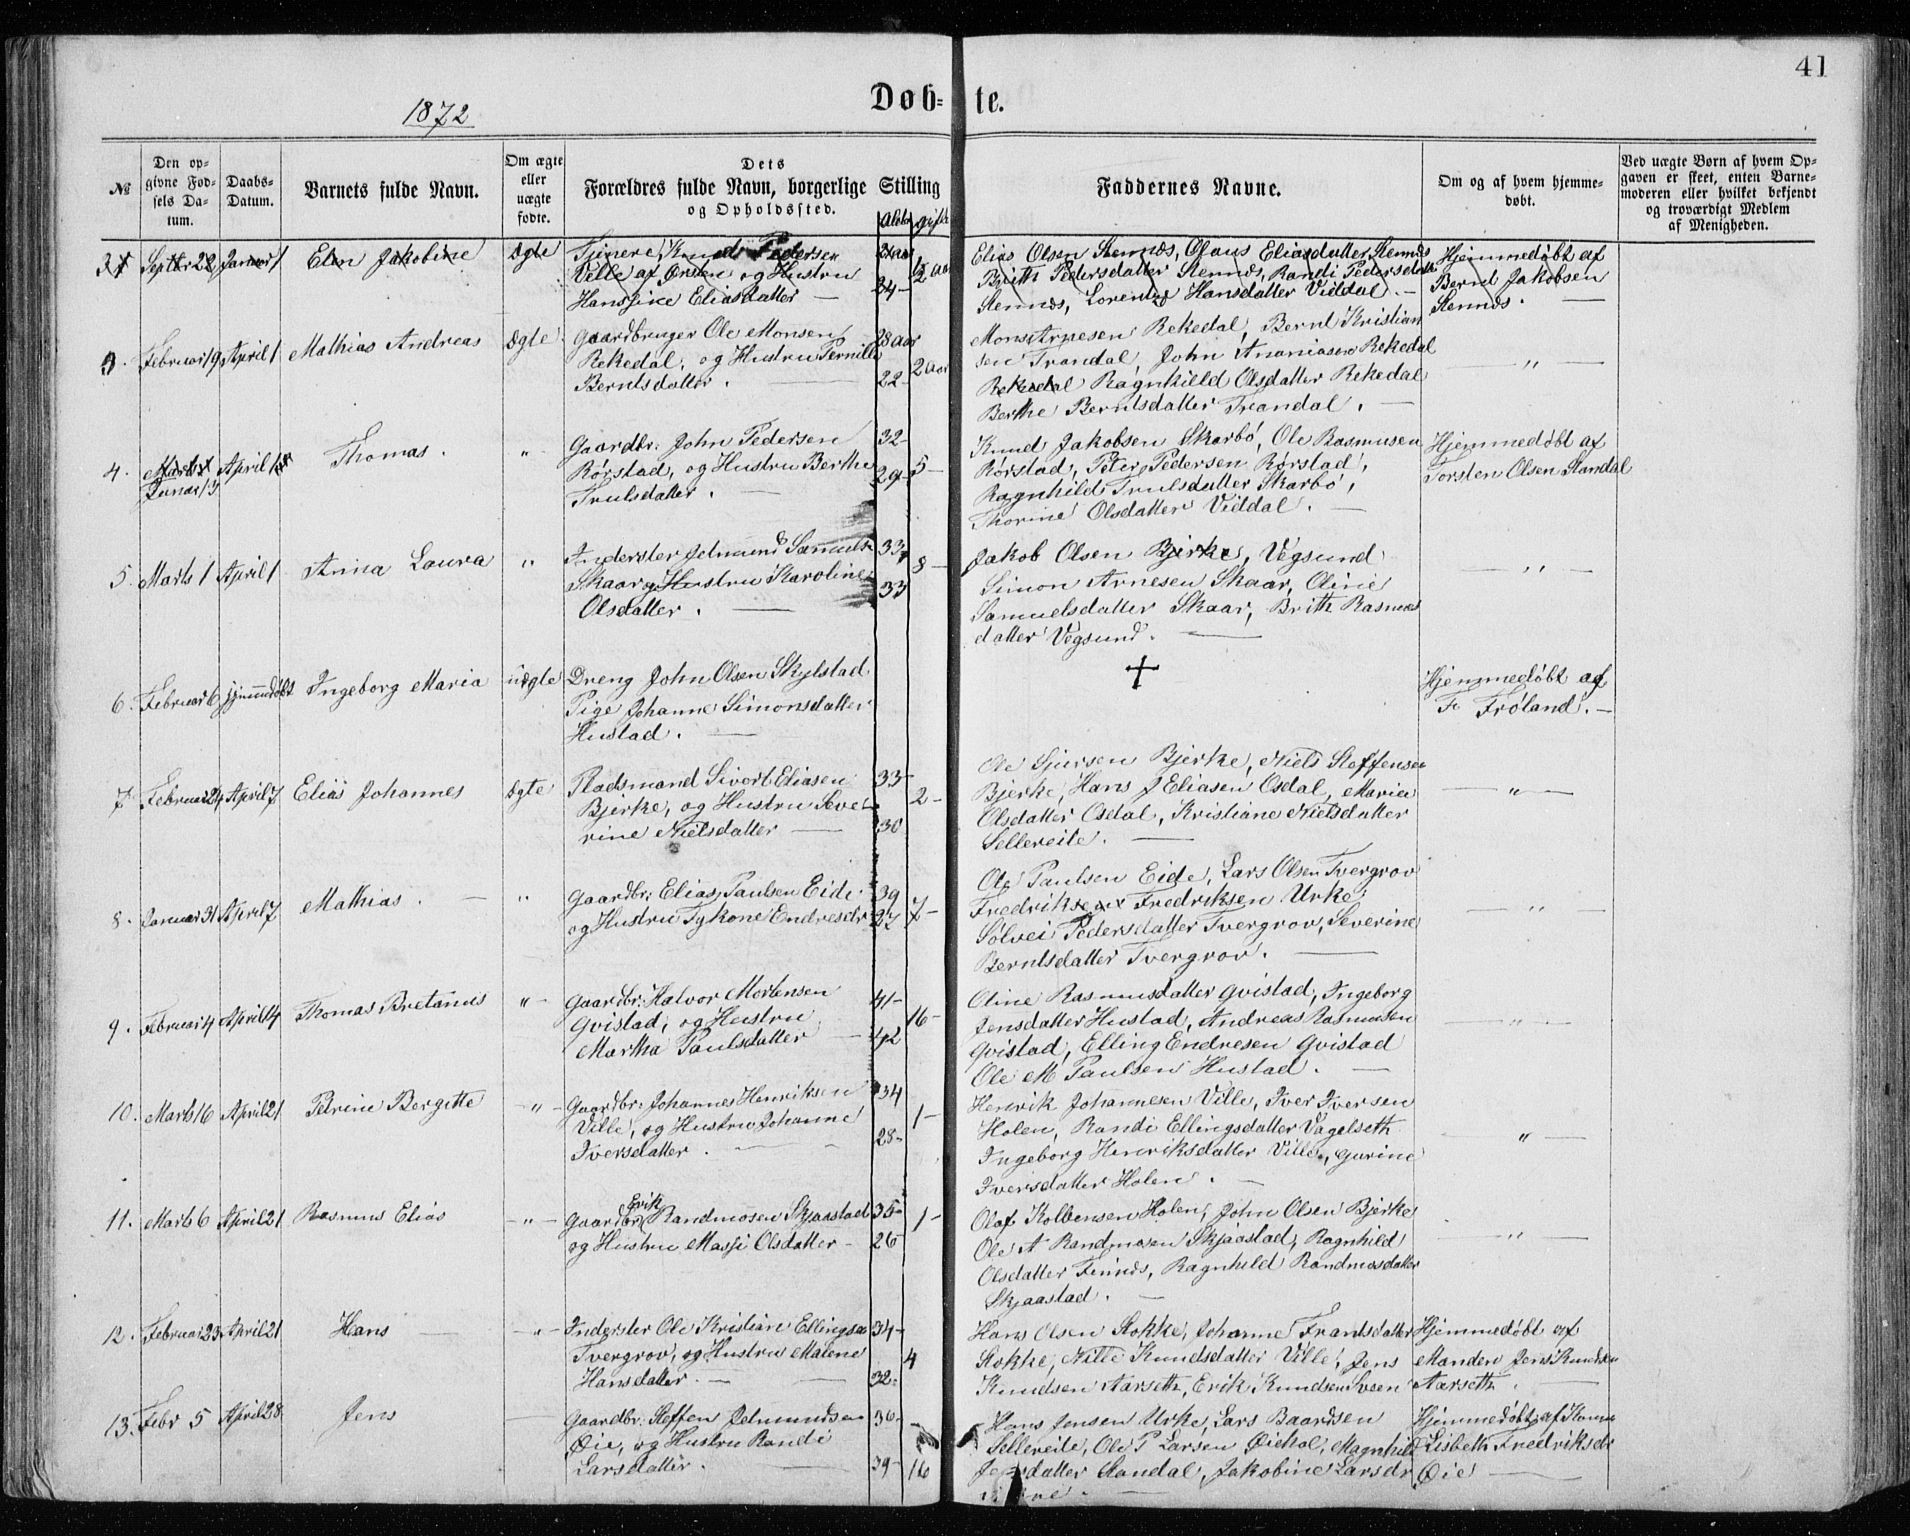 41
1872
Døb- te.
№
Den opgivne Fødsels Datum.
Daabs-Datum.
Barnets fulde Navn.
Om ægte eller uægte fødte.
Dets Forældres fulde Navn, borgerlige Stilling og Opholdssted.
Alder
gifte
Faddernes Navne.
Om og af hvem hjemmedøbt.
Ved uægte Børn af hvem Opgaven er skeet, enten Barnemoderen eller hvilket bekjendt og troværdigt Medlem af Menigheden.
Septbr 22 Januar 1 Elen Jakobine ægte Tjener Knud Pedersen
Ville af Ørsten og Hustru
Hansine Eliasdatter — 34-
Elias Olsen Stennes, Olaus Eliasdatter Stennes
Brith Pedersdatter Stennes, Randi Pedersdatter
Stennes, Lorentse Hansdatter Viddal. -
Hjemmedøbt af
Bernt Jakobsen
Stennes. —
3. Februar 19 April 1 Mathias Andreas ægte Gaardbruger Ole Monsen 28 aar
Rekedal, og Hustru Pernille 2 aar
Berntsdatter. — 22-
Mons Arnesen Rekedal, Bernt Kristian
sen Trandal, John Ananiasen Rekedal
Rekedal Ragnhild Olsdatter Rekedal
Berthe Berntsdatter Trandal. — — " —
4. Marts 1 Januar 13 April 1 Thomas. " Gaardbr: John Pedersen 32-
Rørstad, og Hustru Berthe 29- 5-
Trulsdatter. —
Knud Jakobsen Skarbø, Ole Rasmusen
Rørstad, Peter Pedersen Rørstad,
Ragnhild Trulsdatter Skarbø,
Thorine Olsdatter Viddal. —
Hjemmedøbt af
Torsten Olsen Standal
5. Marts 1 April 1 Anna Laura " Inderster Jetmund Samuels 33
Skaar og Hustru Karoline 8-
Olsdatter. — 33
Jakob Olsen Bjerke, Vegsund
Simon Arnesen Skaar, Oline
Samuelsdatter Skaar, Brith Rasmus
datter Vegsund. — — " —
6. Februar 6 hjemmedøbt Ingeborg Maria uægte Dreng John Olsen Skylstad
Pige Johanne Simonsdatter
Hustad. —
+
Hjemmedøbt af
F. Frøland. —
7. Februar 24 April 7 Elias Johannes ægte Pladsmand Sivert Eliasen 33-
Bjerke, og Hustru Seve- 2-
rine Nielsdatter — 30
Ole Sjursen Bjerke, Niels Steffensen
Bjerke, Hans J Eliasen Osdal, Marie
Olsdatter Osdal, Kristiane Nielsdatter
Sellereite. — — " —
8. Januar 31 April 7 Mathias. — " Gaardbr: Elias Paulsen Eide 39
og Hustru Tykone Endresdr 27 7-
Ole Paulsen Eide, Lars Olsen Tvergrov
Fredriksen Fredriksen Urke
Sølvei Pedersdatter Tvergrov, Severine
Berntsdatter Tvergrov. — — " —
9. Februar 4 April 14 Thomas Bretanus " — Gaardbr: Halvor Mortensen 41-
Qvistad, og Hustru 16-
Martha Paulsdatter — 42
Oline Rasmusdatter Qvistad, Ingeborg
Jensdatter Hustad, Andreas Rasmusen
Qvistad, Elling Endresen Qvistad
Ole M Paulsen Hustad. — — " —
10. Marts 16 April 21 Petrine Bergitte — " — Gaardbr: Johannes Henriksen 34
Ville, og Hustru Johanne 1-
Iversdatter. — 28-
Henrik Johannesen Ville, Iver Iversen
Holen, Randi Ellingsdatter Vagelseth
Ingeborg Henriksdatter Ville, Gurine
Iversdatter Holen. — " —
11. Marts 6 April 21 Rasmus Elias — " — Gaardbr: Erik Randmosen Skjaastad 35- 1-
og Hustru Massi Olsdatter — 26
Olaf Kolbensen Holen, John Olsen Bjerke
Ole A Randmosen Skjaastad, Ragnhild
Olsdatter Finnes, Ragnhild Randmosdatter
Skjaastad. — — " —
12. Februar 23 April 21 Hans — — " — Inderster Ole Kristian Ellingsen 34-
Tvergrov, og Hustru Malene 4
Hansdatter. — 32-
Hans Olsen Stokke, Johanne Frantsdatter
Stokke, Nille Knudsdatter Ville, Jens
Knudsen Aarseth, Erik Knudsen
Hjemmedøbt af
Manden Jens Knudsen
Aarseth. —
13. Febr 5 April 28 Jens — Gaardbr: Steffen Jetmundsen 36-
Øie, og Hustru Randi
Larsdatter. — 39- 16
Hans Jensen Urke, Lars Baardsen
Sellereite, Ole P Larsen Øiehol, Magnhild
Jensdatter Standal, Jakobine Larsdr
Hjemmedøbt af Kone
Lisbeth Fredriksdr
Øie —